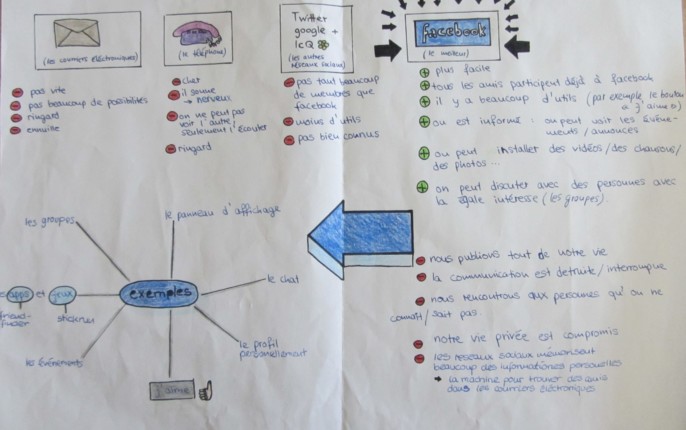 (les courriers électroniques)
pas vite
pas beaucoup de possibilités
ringard
ennuite
(le téléphone)
chat
il sonne
→ nerveux
on ne peut pas
voir l'autre,
seulement l'écouter
ringard
Twitter
google +
IcQ
(les autres
réseaux sociaux)
pas tant beaucoup
de membres que
facebook
moins d'utils
pas bien connus
facebook
(le meilleur)
plus facile
tous les amis participent déjà à facebook
il y a beaucoup d'utils (par exemple le bouton
"j'aime")
on est informé : on peut voir les événe-
ments / annonces
on peut installer des vidéos / des chansons /
des photos ...
on peut discuter avec des personnes avec
la égale intéresse (les groupes).
exemples
les groupes
le panneau d'affichage
le chat
le profil
personellement
j'aime
les événements
apps et jeux
friend-
finder
stickrun
nous publions tout de notre vie
la communication est detruite / interrompue
nous rencontrons aux personnes qu'on ne
connaît / sait pas.
notre vie privée est compromis
les reseaux sociaux mémorisent
beaucoup des informationes personelles
→ la machine pour trouver des amis
dans les courriers électroniques